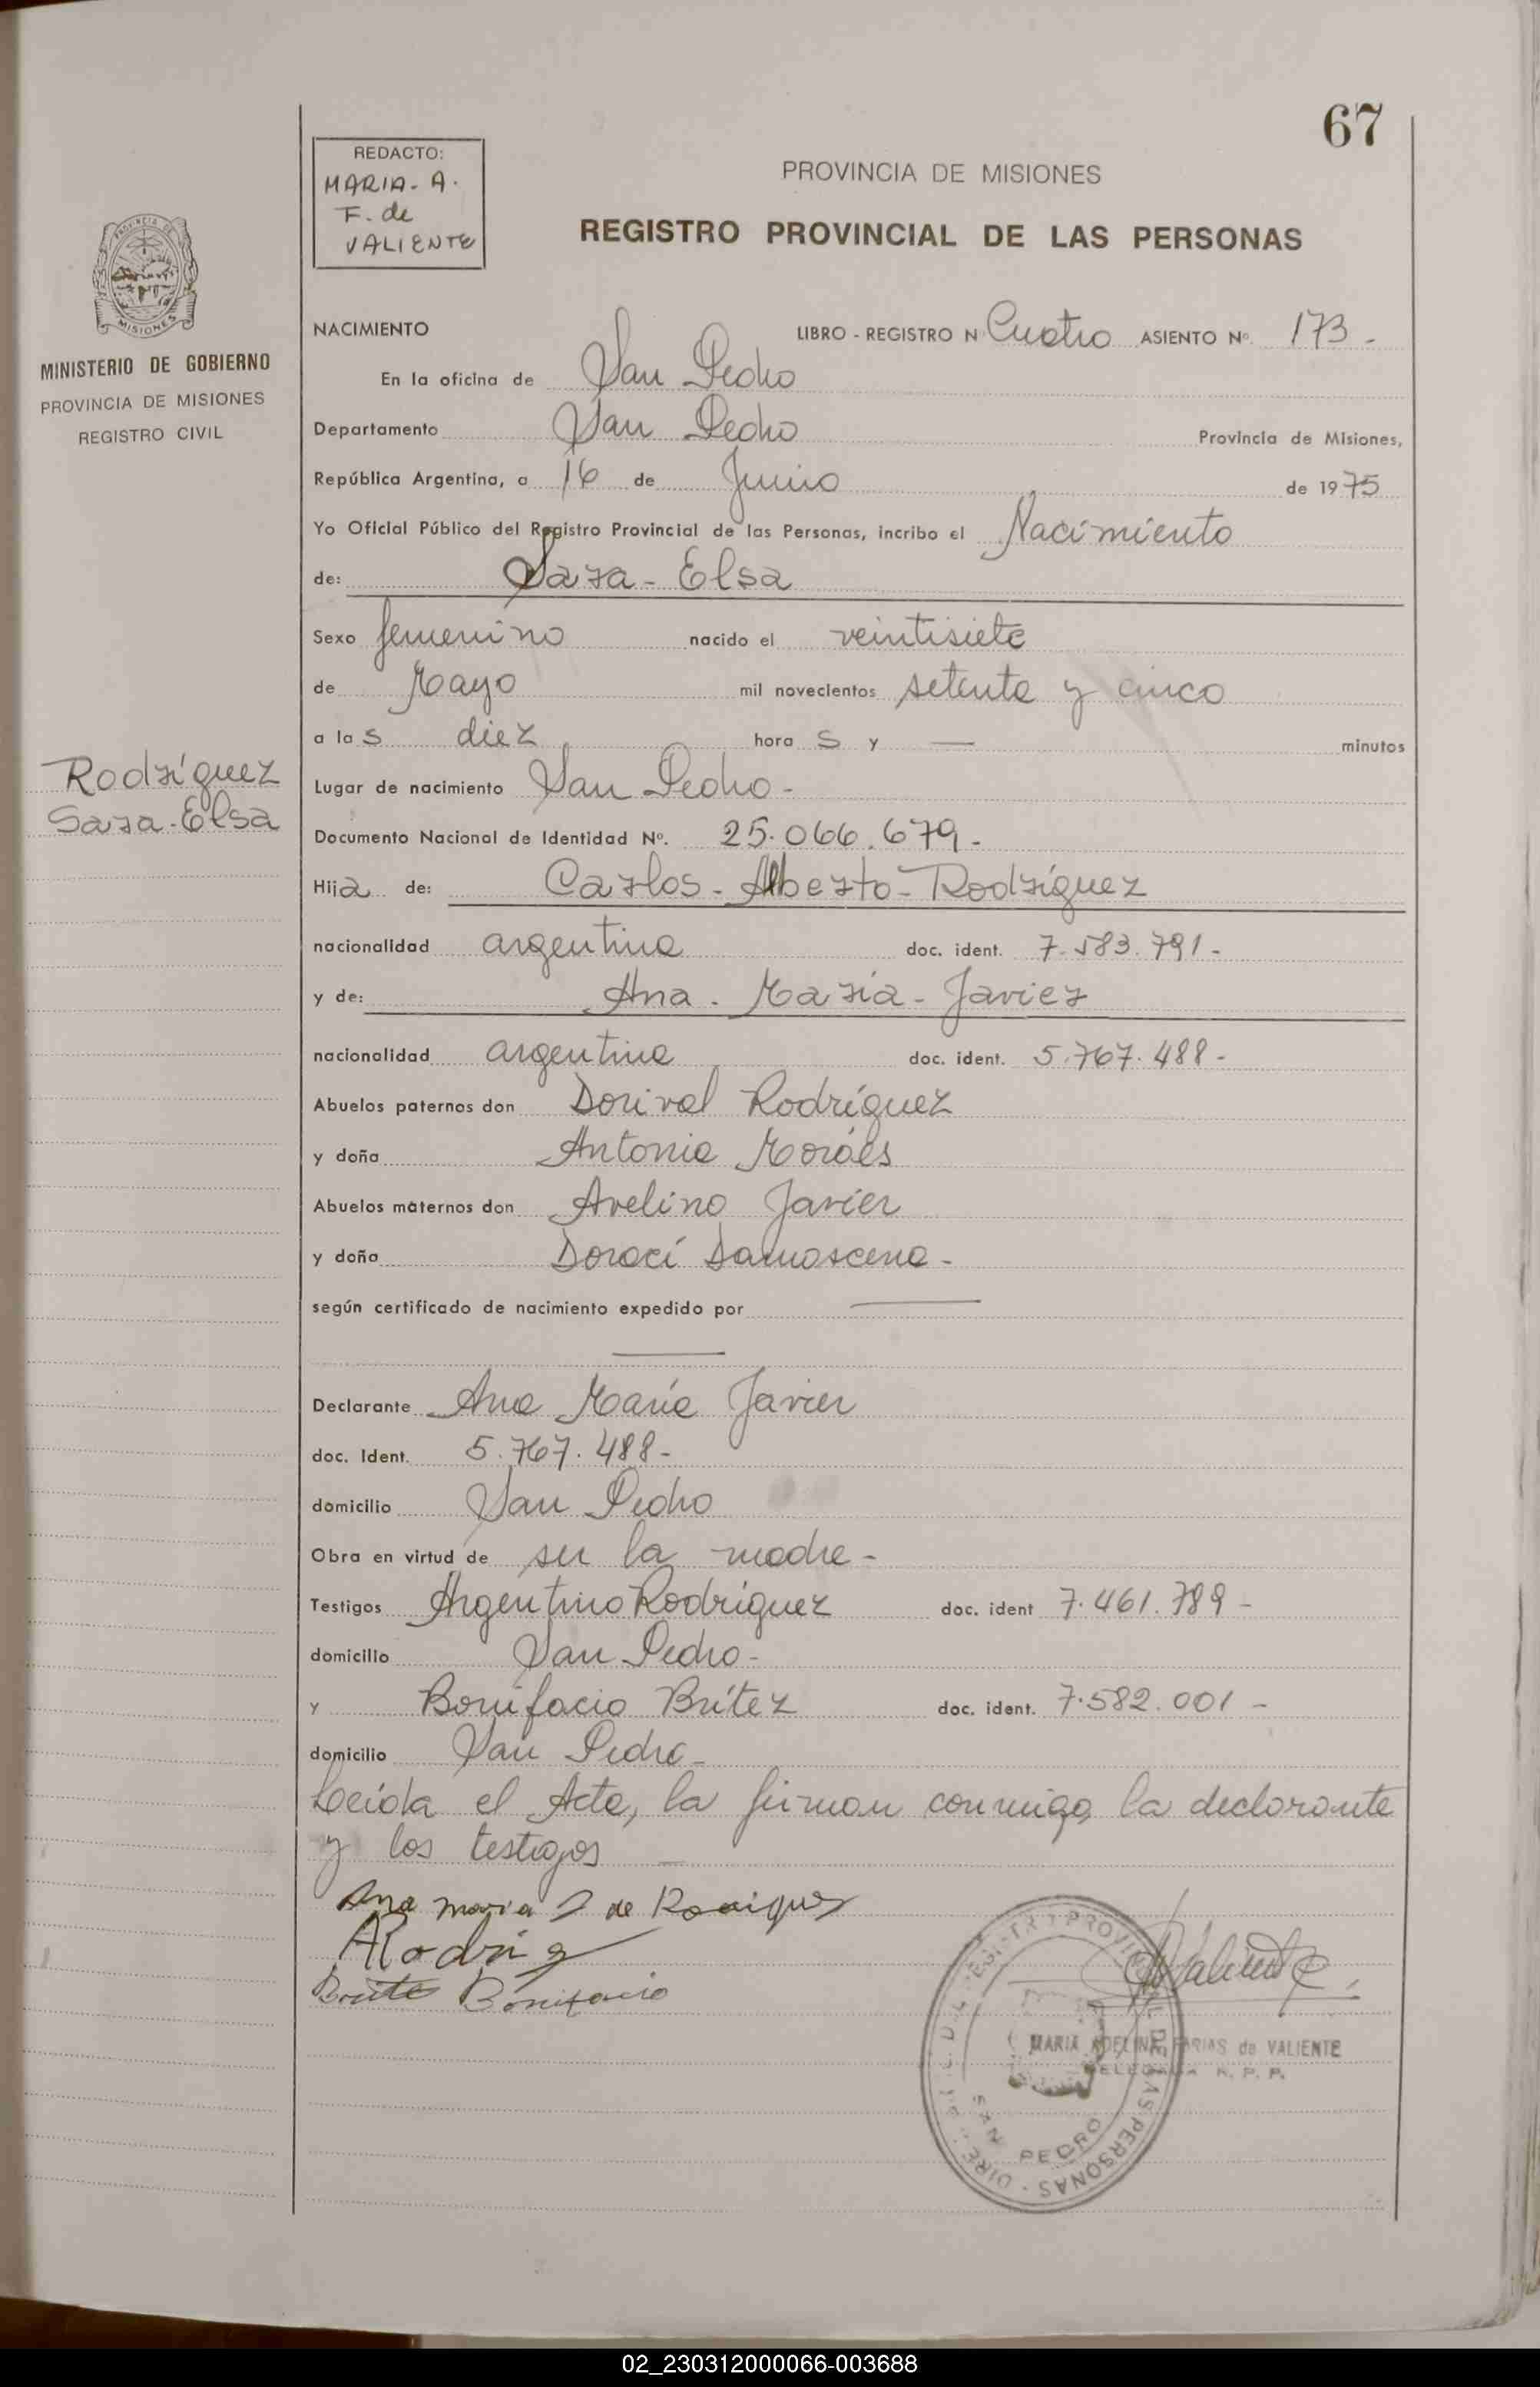 67
REDACTO:
MARIA-A.
F. de
VALIENTE
PROVINCIA DE MISIONES
REGISTRO PROVINCIAL DE LAS PERSONAS
MISIONES
MINISTERIO DE GOBIERNO
PROVINCIA DE MISIONES
REGISTRO CIVIL
NACIMIENTO LIBRO - REGISTRO N Cuatro ASIENTO Nº. 173-
En la oficina de San Pedro
Departamento San Pedro Provincia de Misiones,
República Argentina, a 16 de Junio de 1975
Yo Oficial Público del Registro Provincial de las Personas, incribo el Nacimiento
de: Sara-Elsa
Sexo femenino nacido el veintisiete
de Mayo mil novecientos setenta y cinco
a las diez horas y — minutos
Rodríguez
Sara-Elsa
Lugar de nacimiento San Pedro-
Documento Nacional de Identidad Nº. 25.066.679-
Hija de: Carlos-Alberto-Rodríguez
nacionalidad argentina doc. ident. 7.583.791-
y de: Ana-María-Javier
nacionalidad argentina doc. ident. 5.767.488-
Abuelos paternos don Dorival Rodríguez
y doña Antonia Moráes
Abuelos maternos don Avelino Javier
y doña Doraci Damascena-
según certificado de nacimiento expedido por —
—
Declarante Ana María Javier
doc. Ident. 5.767.488-
domicilio San Pedro
Obra en virtud de ser la madre-
Testigos Argentino Rodríguez doc. ident 7.461.789-
domicilio San Pedro-
y Bonifacio Brítez doc. ident. 7.582.001-
domicilio San Pedro-
Leída el Acta, la firman conmigo, la declarante
y los testigos —
Ana maria J de Rodrigues
ARodrig
Brites Bonifacio
MARIA ADELINA FARIAS de VALIENTE
DELEGADA R. P. P.
SAN PEDRO
02_230312000066-003688